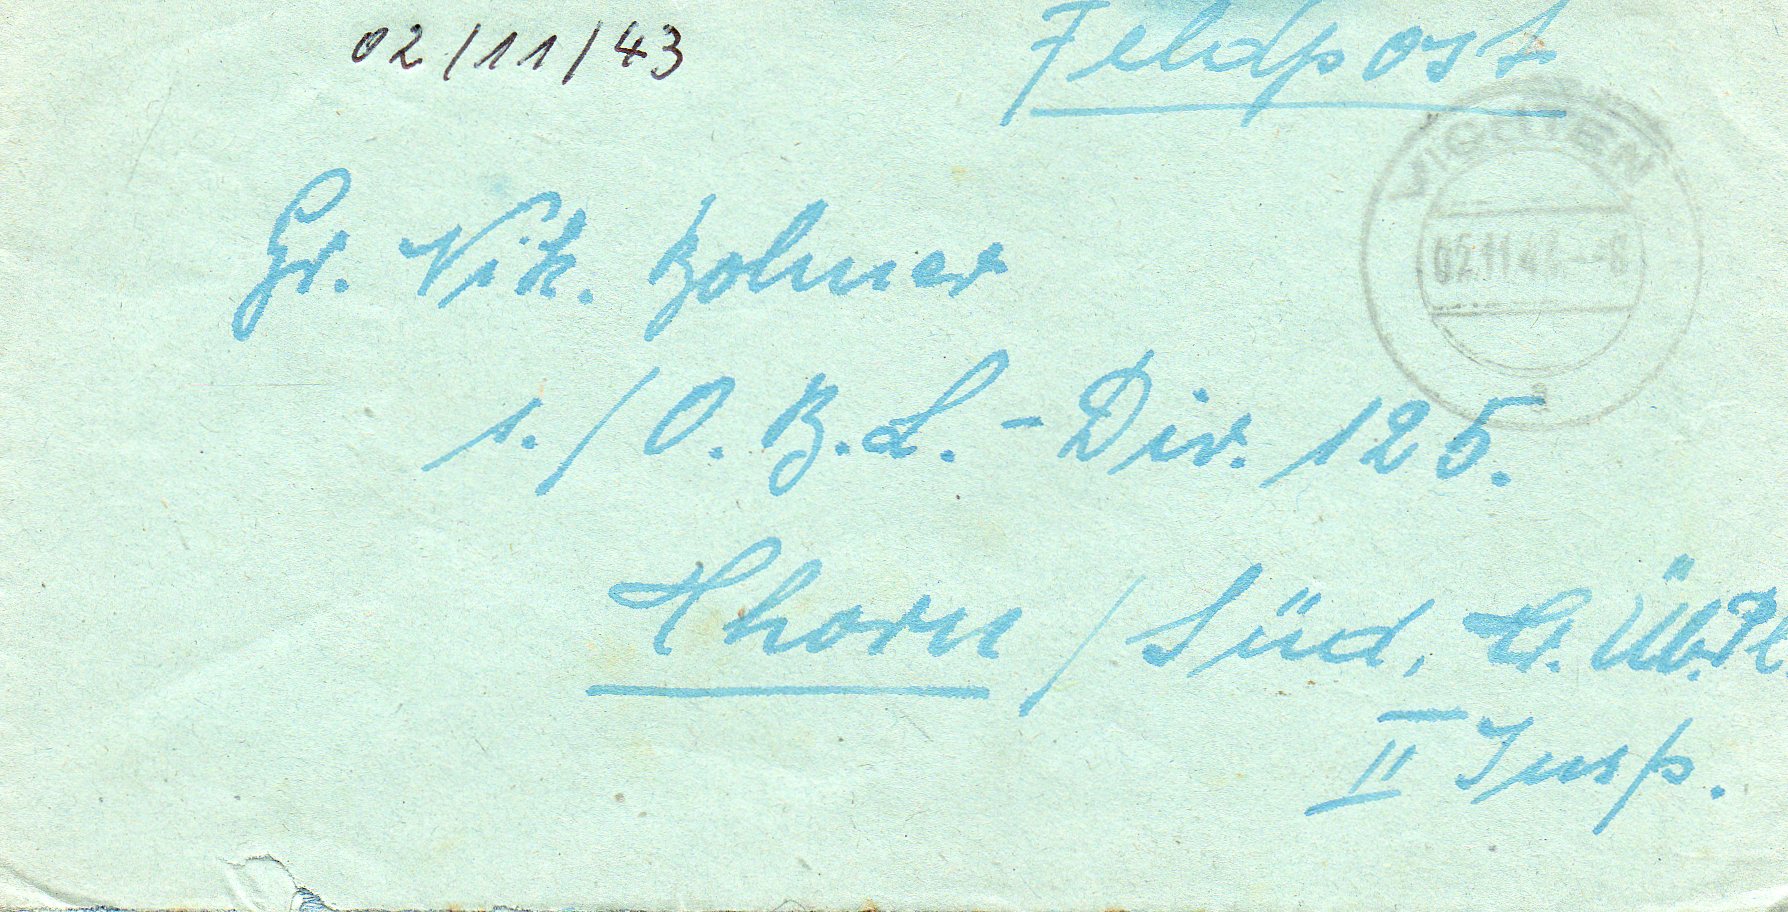 02/11/43
Feldpost
VICHTEN
02.11.43.--8
a
Gr. Nik. Bolmer
1./O.B.L.-Div. 125.
Thorn / Süd, Tr. Üb.Pl
II Insp.